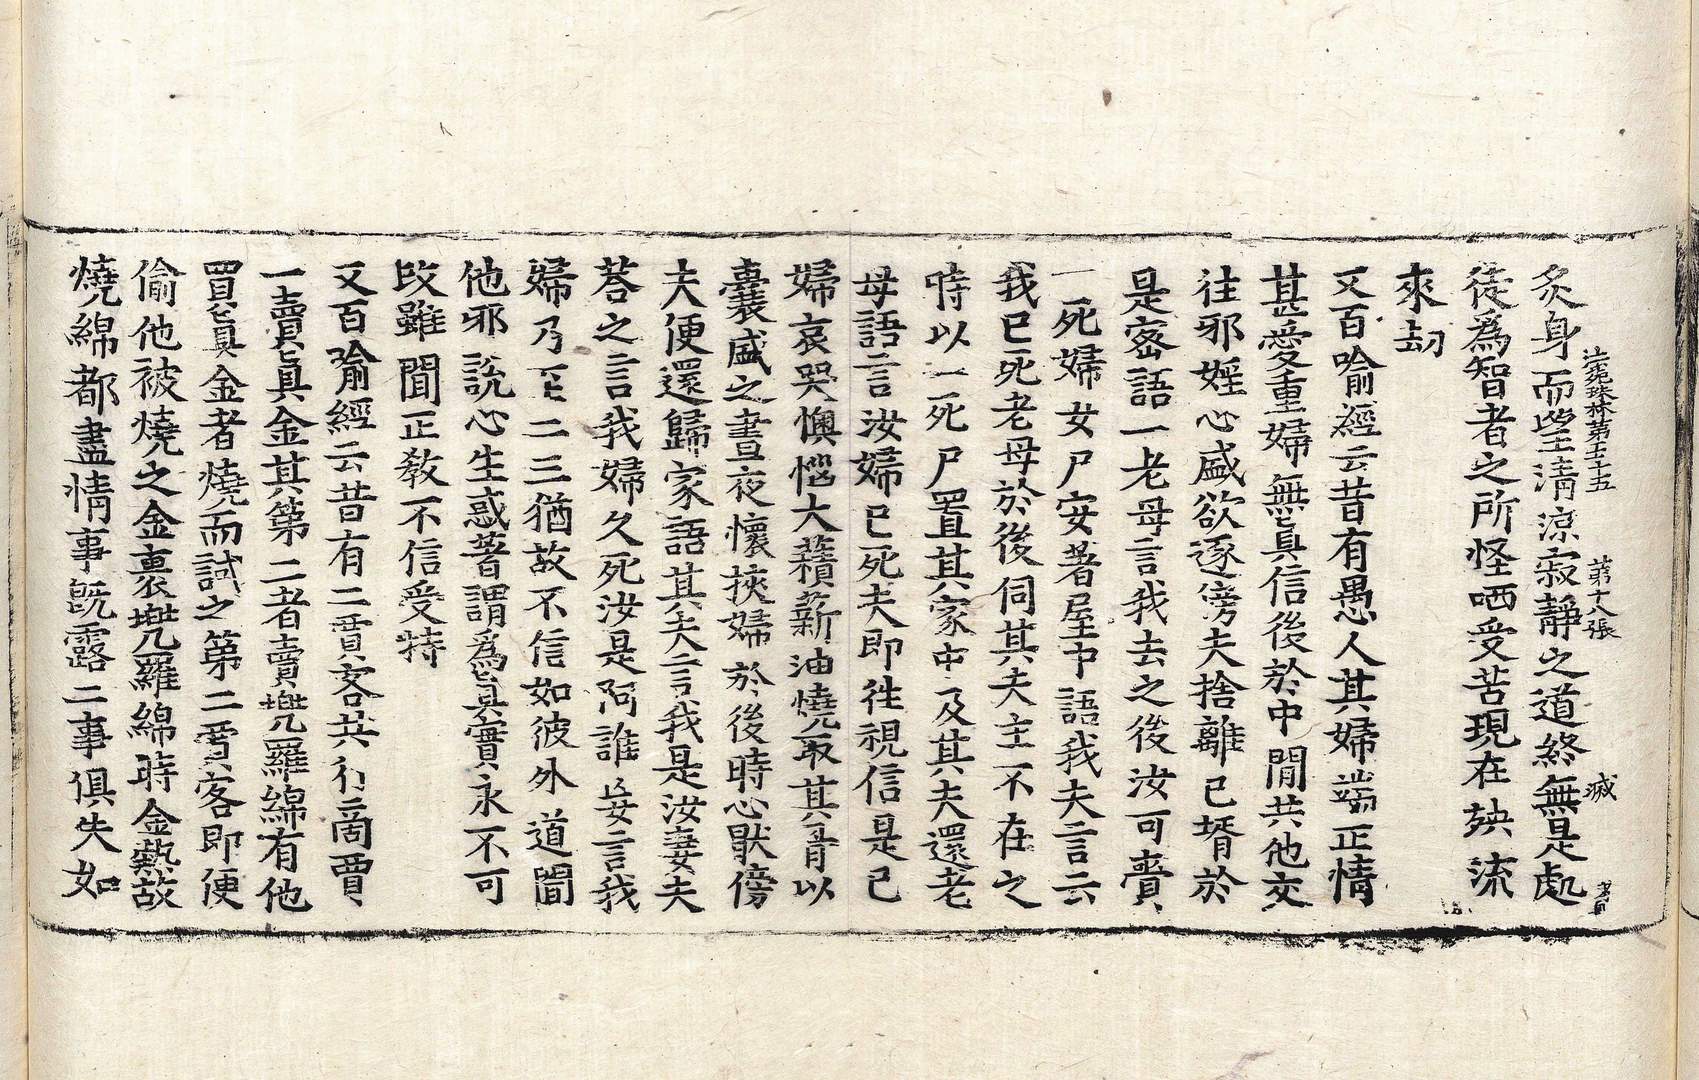 法苑珠林第七十五　第十八張　㵴
炙身而望清涼寂靜之道終無是處
徒爲智者之所怪哂受苦現在殃流
來劫
又百喻經云昔有愚人其婦端正情
甚愛重婦無眞信後於中閒共他交
往邪婬心盛欲逐傍夫捨離已壻於
是密語一老母言我去之後汝可賷
一死婦女尸安著屋中語我夫言云
我已死老母於後伺其夫主不在之
時以一死尸置其家中及其夫還老
母語言汝婦已死夫即徃視信是己
婦哀哭懊惱大䕼薪油燒取其骨以
囊盛之晝夜懷挾婦於後時心猒傍
夫便還歸家語其夫言我是汝妻夫
荅之言我婦久死汝是阿誰妄言我
婦乃至二三猶故不信如彼外道聞
他邪說心生惑著謂爲眞實永不可
改雖聞正教不信受持
又百喻經云昔有二賈客共行商賈
一賣眞金其第二者賣兠羅綿有他
買眞金者燒而試之第二賈客即便
偷他被燒之金裹兠羅綿時金熱故
燒綿都盡情事旣露二事俱失如